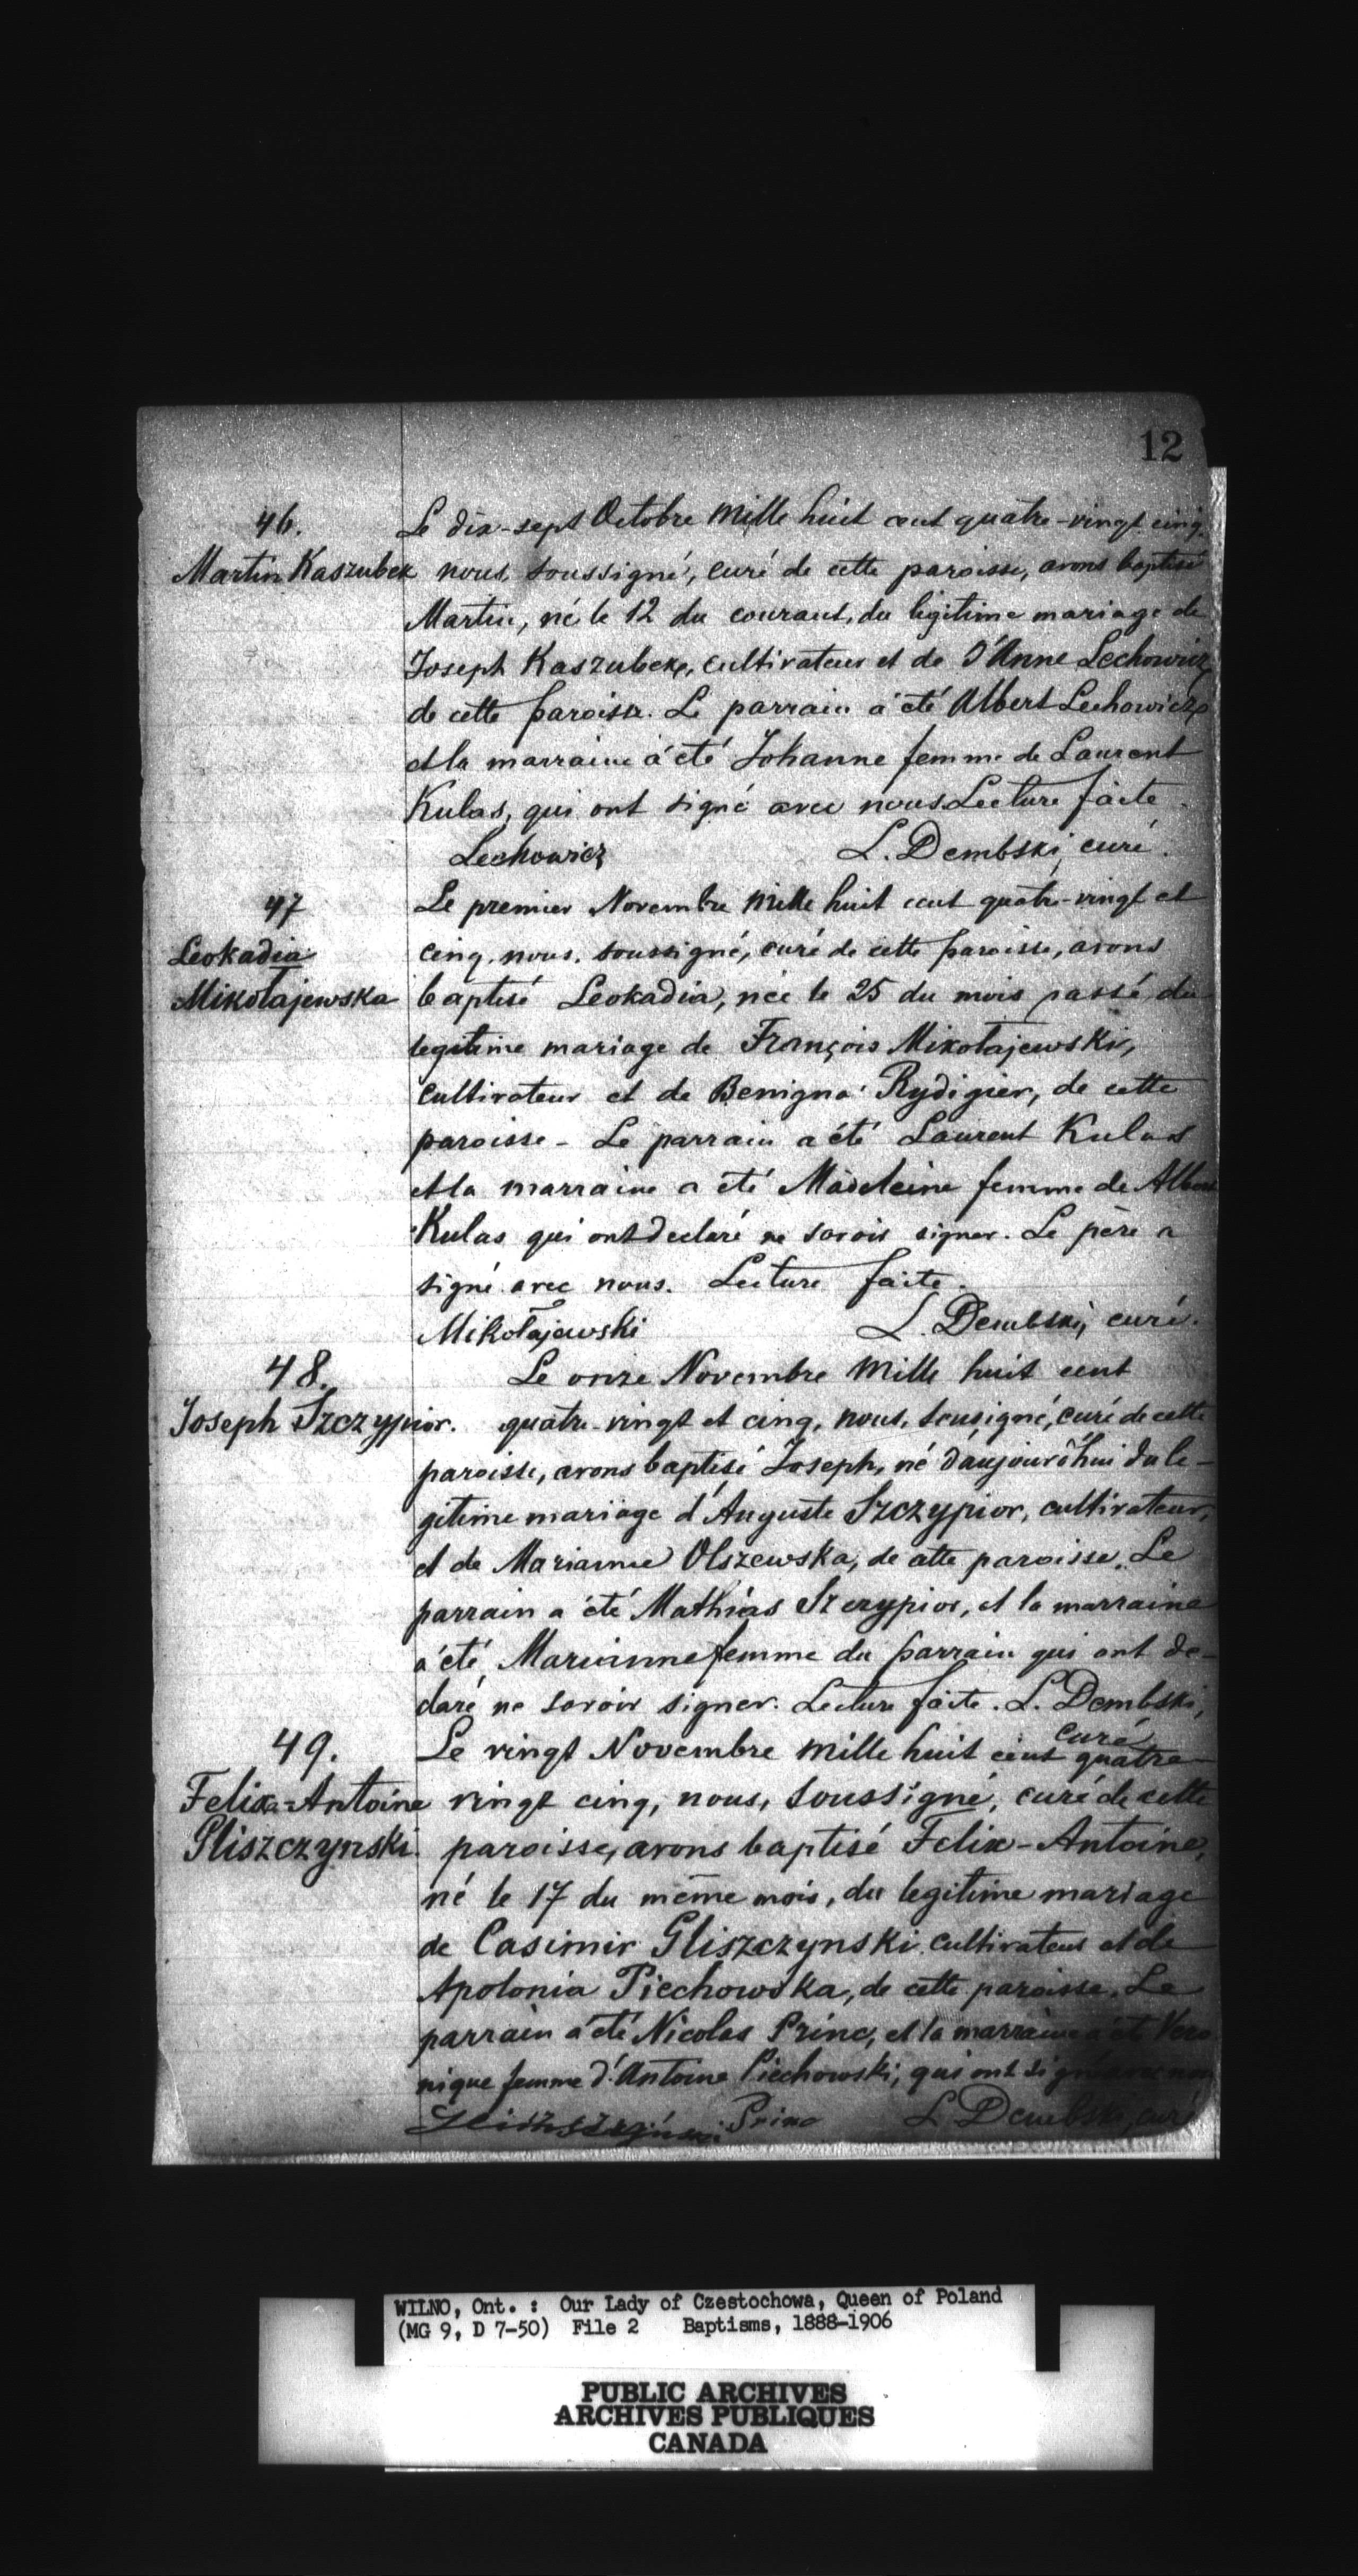 12
46.
Martin Kaszubek
Le dix-sept Octobre Mille huit cent quatre-vingt cinq,
nous, soussigné, curé de cette paroisse, avons baptisé
Martin, né le 12 du courant, du légitime mariage de
Joseph Kaszubek, cultivateur et de d'Anne Lechowicz
de cette paroisse. Le parrain a été Albert Lechowicz
et la marraine a été Johanne femme de Laurent
Kulas, qui ont signé avec nous Lecture faite.
Lechowicz L. Dembski, curé.
47
Leokadia
Mikołajewska
Le premier Novembre Mille huit cent quatre-vingt et
cinq, nous, soussigné, curé de cette paroisse, avons
baptisé Leokadia, née le 25 du mois passé du
legitime mariage de François Mikołajewski,
cultivateur et de Benigna Rydigier, de cette
paroisse - Le parrain a été Laurent Kulas
et la marraine a été Madeleine femme de Albert
Kulas qui ont declaré ne savoir signer. Le père a
signé avec nous. Lecture faite.
Mikołajewski L. Dembski, curé.
48.
Joseph Szczypior.
Le onze Novembre Mille huit cent
quatre-vingt et cinq, nous, sousigné, curé de cette
paroisse, avons baptisé Joseph, né d'aujourd'hui du le-
gitime mariage d'Auguste Szczypior, cultivateur,
et de Marianne Olszewska, de cette paroisse. Le
parrain a été Mathias Szczypior, et la marraine
a été, Marianne femme du parrain qui ont de-
claré ne savoir signer. Lecture faite. L. Dembski,
curé
49.
Felix-Antoine
Gliszczynski.
Le vingt Novembre Mille huit cent quatre-
vingt cinq, nous, soussigné, curé de cette
paroisse, avons baptisé Felix-Antoine,
né le 17 du même mois, du legitime mariage
de Casimir Gliszczynski cultivateur et de
Apolonia Piechowska, de cette paroisse. Le
parrain a été Nicolas Prince, et la marraine a été Vero
nique femme d'Antoine Piechowski, qui ont signé avec nous
Prince L Dembski, curé
WILNO, Ont. : Our Lady of Czestochowa, Queen of Poland
(MG 9, D 7-50) File 2 Baptisms, 1888-1906
PUBLIC ARCHIVES
ARCHIVES PUBLIQUES
CANADA